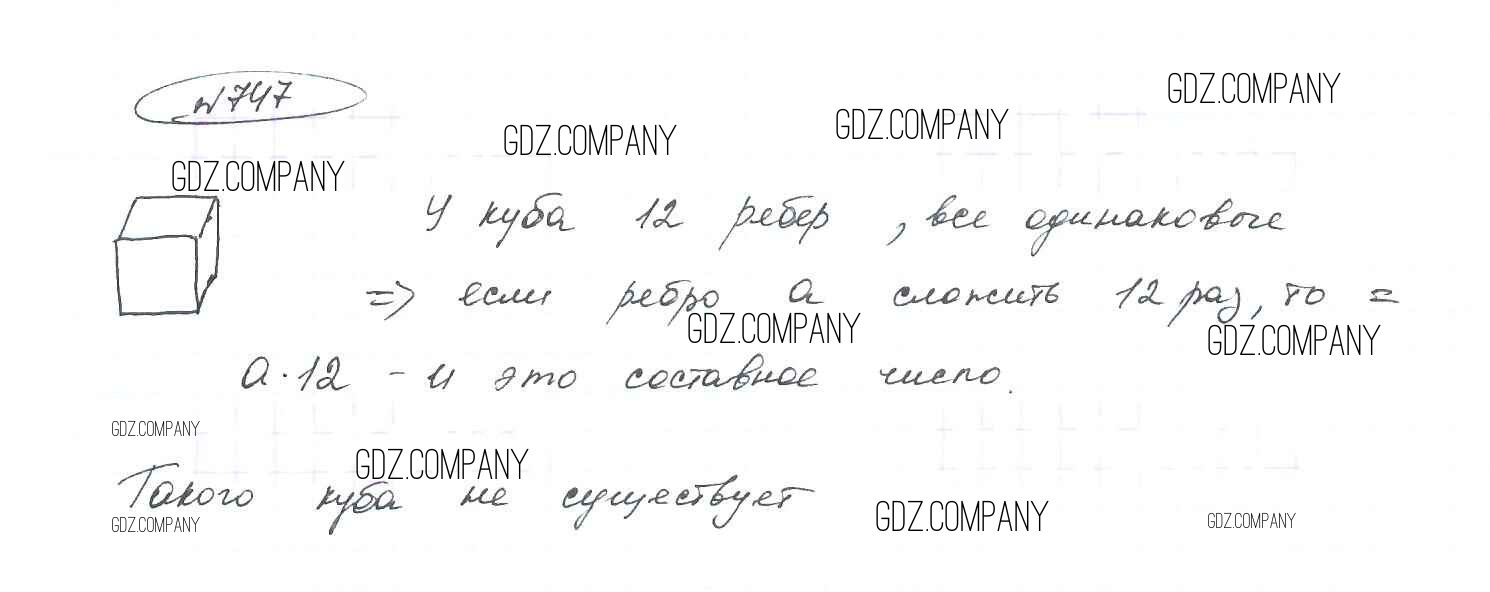 №747
GDZ.COMPANY
GDZ.COMPANY
GDZ.COMPANY
GDZ.COMPANY
У куба 12 ребер, все одинаковые
=> если ребро a сложить 12 раз, то =
GDZ.COMPANY
GDZ.COMPANY
a·12 - и это составное число.
GDZ.COMPANY
GDZ.COMPANY
Такого куба не существует
GDZ.COMPANY
GDZ.COMPANY
GDZ.COMPANY